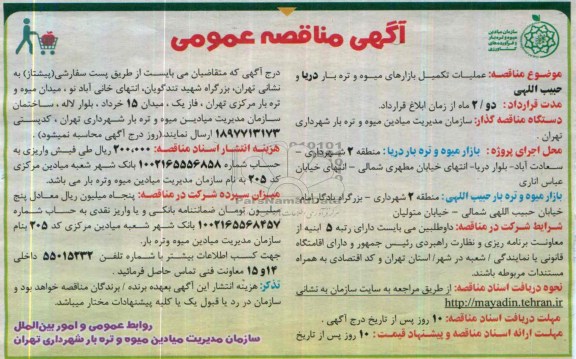 آگهی مناقصه عمومی
سازمان میادین
میوه و تره بار
و فرآورده‌های
کشاورزی
موضوع مناقصه: عملیات تکمیل بازارهای میوه و تره بار دریا و
حبیب اللهی
مدت قرارداد: دو / ۲ ماه از زمان ابلاغ قرارداد.
دستگاه مناقصه گذار: سازمان مدیریت میادین میوه و تره بار شهرداری
تهران .
محل اجرای پروژه: بازار میوه و تره بار دریا: منطقه ۲ شهرداری –
سعادت آباد- بلوار دریا- انتهای خیابان مطهری شمالی – انتهای خیابان
عباس اناری
بازار میوه و تره بار حبیب اللهی: منطقه ۲ شهرداری – بزرگراه
خیابان حبیب اللهی شمالی – خیابان متولیان
شرایط شرکت در مناقصه: داوطلبین می بایست دارای رتبه ۵ ابنیه از
معاونت برنامه ریزی و نظارت راهبردی رئیس جمهور و دارای اقامتگاه
قانونی یا نمایندگی / شعبه در شهر/ استان تهران و کد اقتصادی به همراه
مستندات مربوطه باشند.
نحوه دریافت اسناد مناقصه: از طریق مراجعه به سایت سازمان به نشانی
http://mayadin.tehran.ir
مهلت دریافت اسناد مناقصه: ۱۰ روز پس از تاریخ درج آگهی .
مهلت ارائه اسناد مناقصه و پیشنهاد قیمت: ۱۰ روز پس از تاریخ
درج آگهی که متقاضیان می بایست از طریق پست سفارشی(پیشتاز) به
نشانی تهران، بزرگراه شهید تندگویان، انتهای خانی آباد نو ، میدان میوه و
تره بار مرکزی تهران ، فاز یک ، میدان ۱۵ خرداد ، بلوار لاله ، ساختمان
سازمان مدیریت میادین میوه و تره بار شهرداری تهران ، کدپستی
۱۸۹۷۷۱۳۱۷۳ ارسال نمایند(روز درج آگهی محاسبه نمیشود)
هزینه انتشار اسناد مناقصه: ۲۰۰,۰۰۰ ریال طی فیش واریزی به
حساب شماره ۱۰۰۲۱۶۵۵۵۶۸۵۸ بانک شهر شعبه میادین مرکزی
کد ۲۰۵ به نام سازمان مدیریت میادین میوه وتره بار می باشد.
میزان سپرده شرکت در مناقصه: پنجاه میلیون ریال معادل پنج
میلیون تومان ضمانتنامه بانکی و یا واریز نقدی به حساب شماره
۱۰۰۲۱۶۵۵۶۸۴۵۷ بانک شهر شعبه میادین مرکزی کد ۲۰۵ بنام
سازمان مدیریت میادین میوه وتره بار.
جهت کسب اطلاعات بیشتر با شماره تلفن ۵۵۰۱۵۲۳۲ داخلی
۱۴ و ۱۵ معاونت فنی تماس حاصل فرمائید .
تذکر: هزینه انتشار این آگهی بعهده برنده / برندگان مناقصه خواهد بود و
سازمان در رد یا قبول یک یا کلیه پیشنهادات مختار میباشد.
روابط عمومی و امور بین‌الملل
سازمان مدیریت میادین میوه و تره بار شهرداری تهران